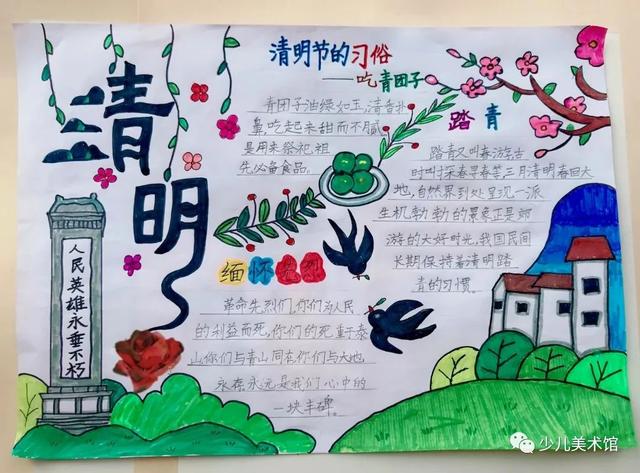 清明
清明节的习俗
——吃青团子
青团子油绿如玉,清香扑
鼻,吃起来甜而不腻
是用来祭祀祖
先必备食品。
踏青
踏青又叫春游,古
时叫探春寻春等三月清明春回大
地,自然界到处呈现一派
生机勃勃的景象正是郊
游的大好时光,我国民间
长期保持着清明踏
青的习惯。
缅怀先烈
革命先烈们,你们为人民
的利益而死,你们的死重于泰
山你们与青山同在你们与大地
永存永远是我们心中的
一块丰碑。
人民英雄永垂不朽
少儿美术馆